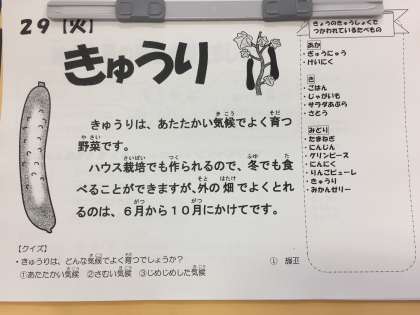 29【火】
きゅうり
きゅうりは、あたたかい気候でよく育つ
野菜です。
ハウス栽培でも作られるので、冬でも食
べることができますが、外の畑でよくとれ
るのは、6月から10月にかけてです。
【クイズ】
・きゅうりは、どんな気候でよく育つでしょうか？
①あたたかい気候　②さむい気候　③じめじめした気候
①
きょうのきゅうしょくで
つかわれているたべもの
あか
・ぎゅうにゅう
・けいにく
き
・ごはん
・じゃがいも
・サラダあぶら
・さとう
みどり
・たまねぎ
・にんじん
・グリンピース
・にんにく
・りんごピューレ
・きゅうり
・みかんゼリー